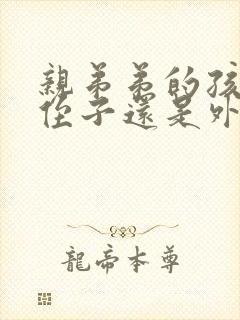 親弟弟的孩
侄子還是外
龍帝本尊